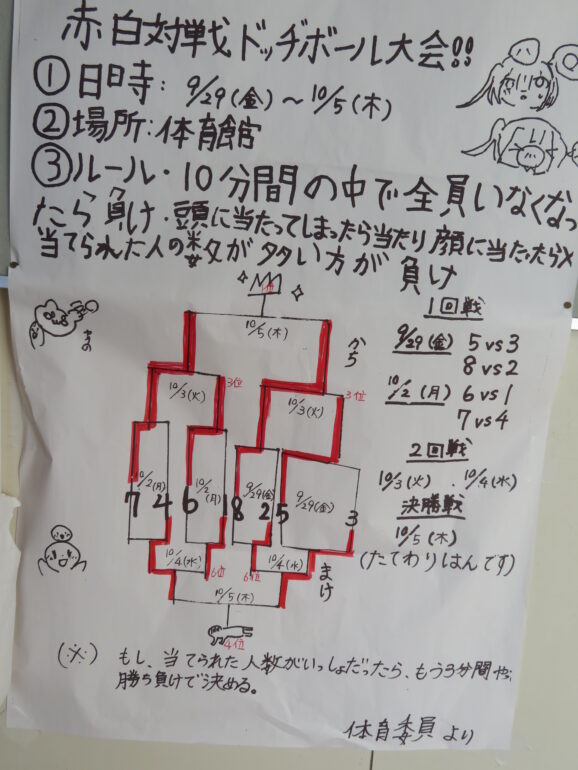 赤白対戦ドッヂボール大会!!
①日時:9/29(金)~10/5(木)
②場所:体育館
③ルール・10分間の中で全員いなくなっ
たら負け・頭に当たってしまったら当たり顔に当たったら×
当てられた人の数が多い方が負け
1位
10/5(木)
かち
10/3(火)
3位
10/3(火)
3位
10/2(月)
10/2(月)
9/29(金)
9/29(金)
7 4 6 1 8 2 5 3
10/4(水)
6位
6位
10/4(水)
まけ
10/5(木)
4位
1回戦
9/29(金) 5vs3
8vs2
10/2(月) 6vs1
7vs4
2回戦
10/3(火)・10/4(水)
決勝戦
10/5(木)
(たてわりはんです)
(※)もし、当てられた人数がいっしょだったら、もう3分間や
勝ち負けで決める。
体育委員より